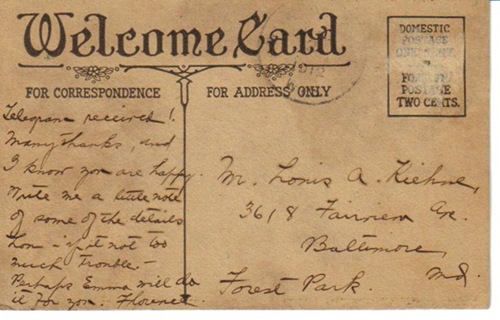 Welcome Card
FOR CORRESPONDENCE
FOR ADDRESS ONLY
DOMESTIC
POSTAGE
ONE CENT
FOREIGN
POSTAGE
TWO CENTS.
Telegram received!
Many thanks, and
I know you are happy.
Write me a little note
of some of the details
if it not too
much trouble -
Perhaps Emma will do
it for you. Florence
Mr. Louis A. Kiehne,
3618 Fairview Ave.
Baltimore,
Forest Park. Md.